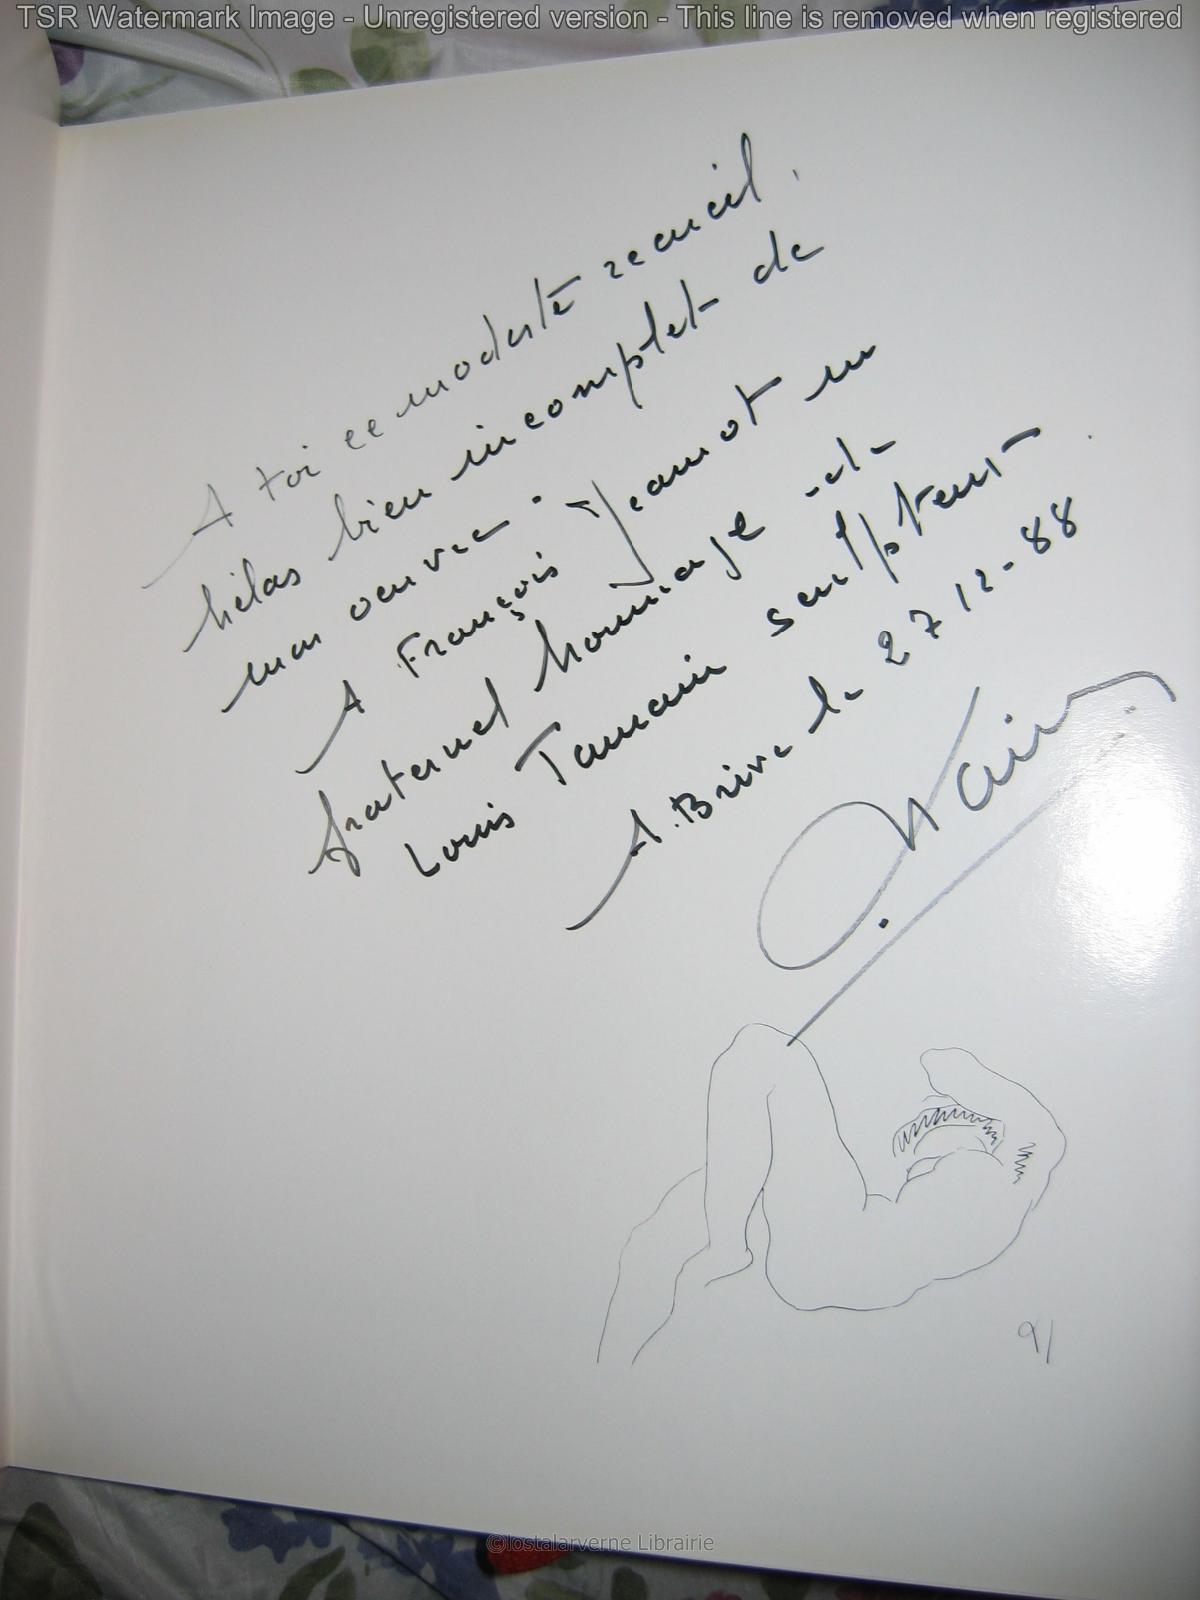 TSR Watermark Image - Unregistered version - This line is removed when registered
A toi ce modeste recueil.
hélas bien incomplet de
mon œuvre.
A François Jeannot un
fraternel hommage de
Louis Tamain sculpteur
A. Brive le 27 12 - 88
©lostalarverne Librairie